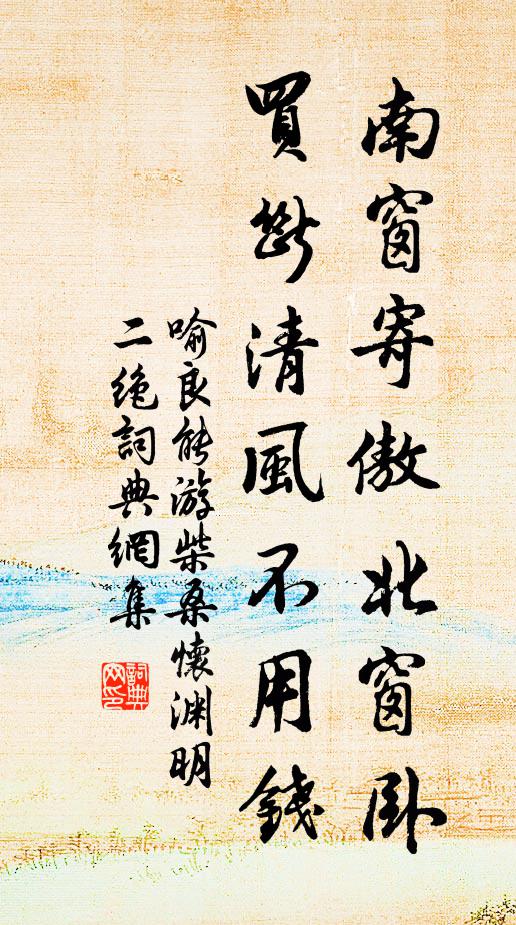 南窗寄傲北窗卧
買斷清風不用錢
喻良能游柴桑懷渊明
二絶詞典網集
詞典
网印